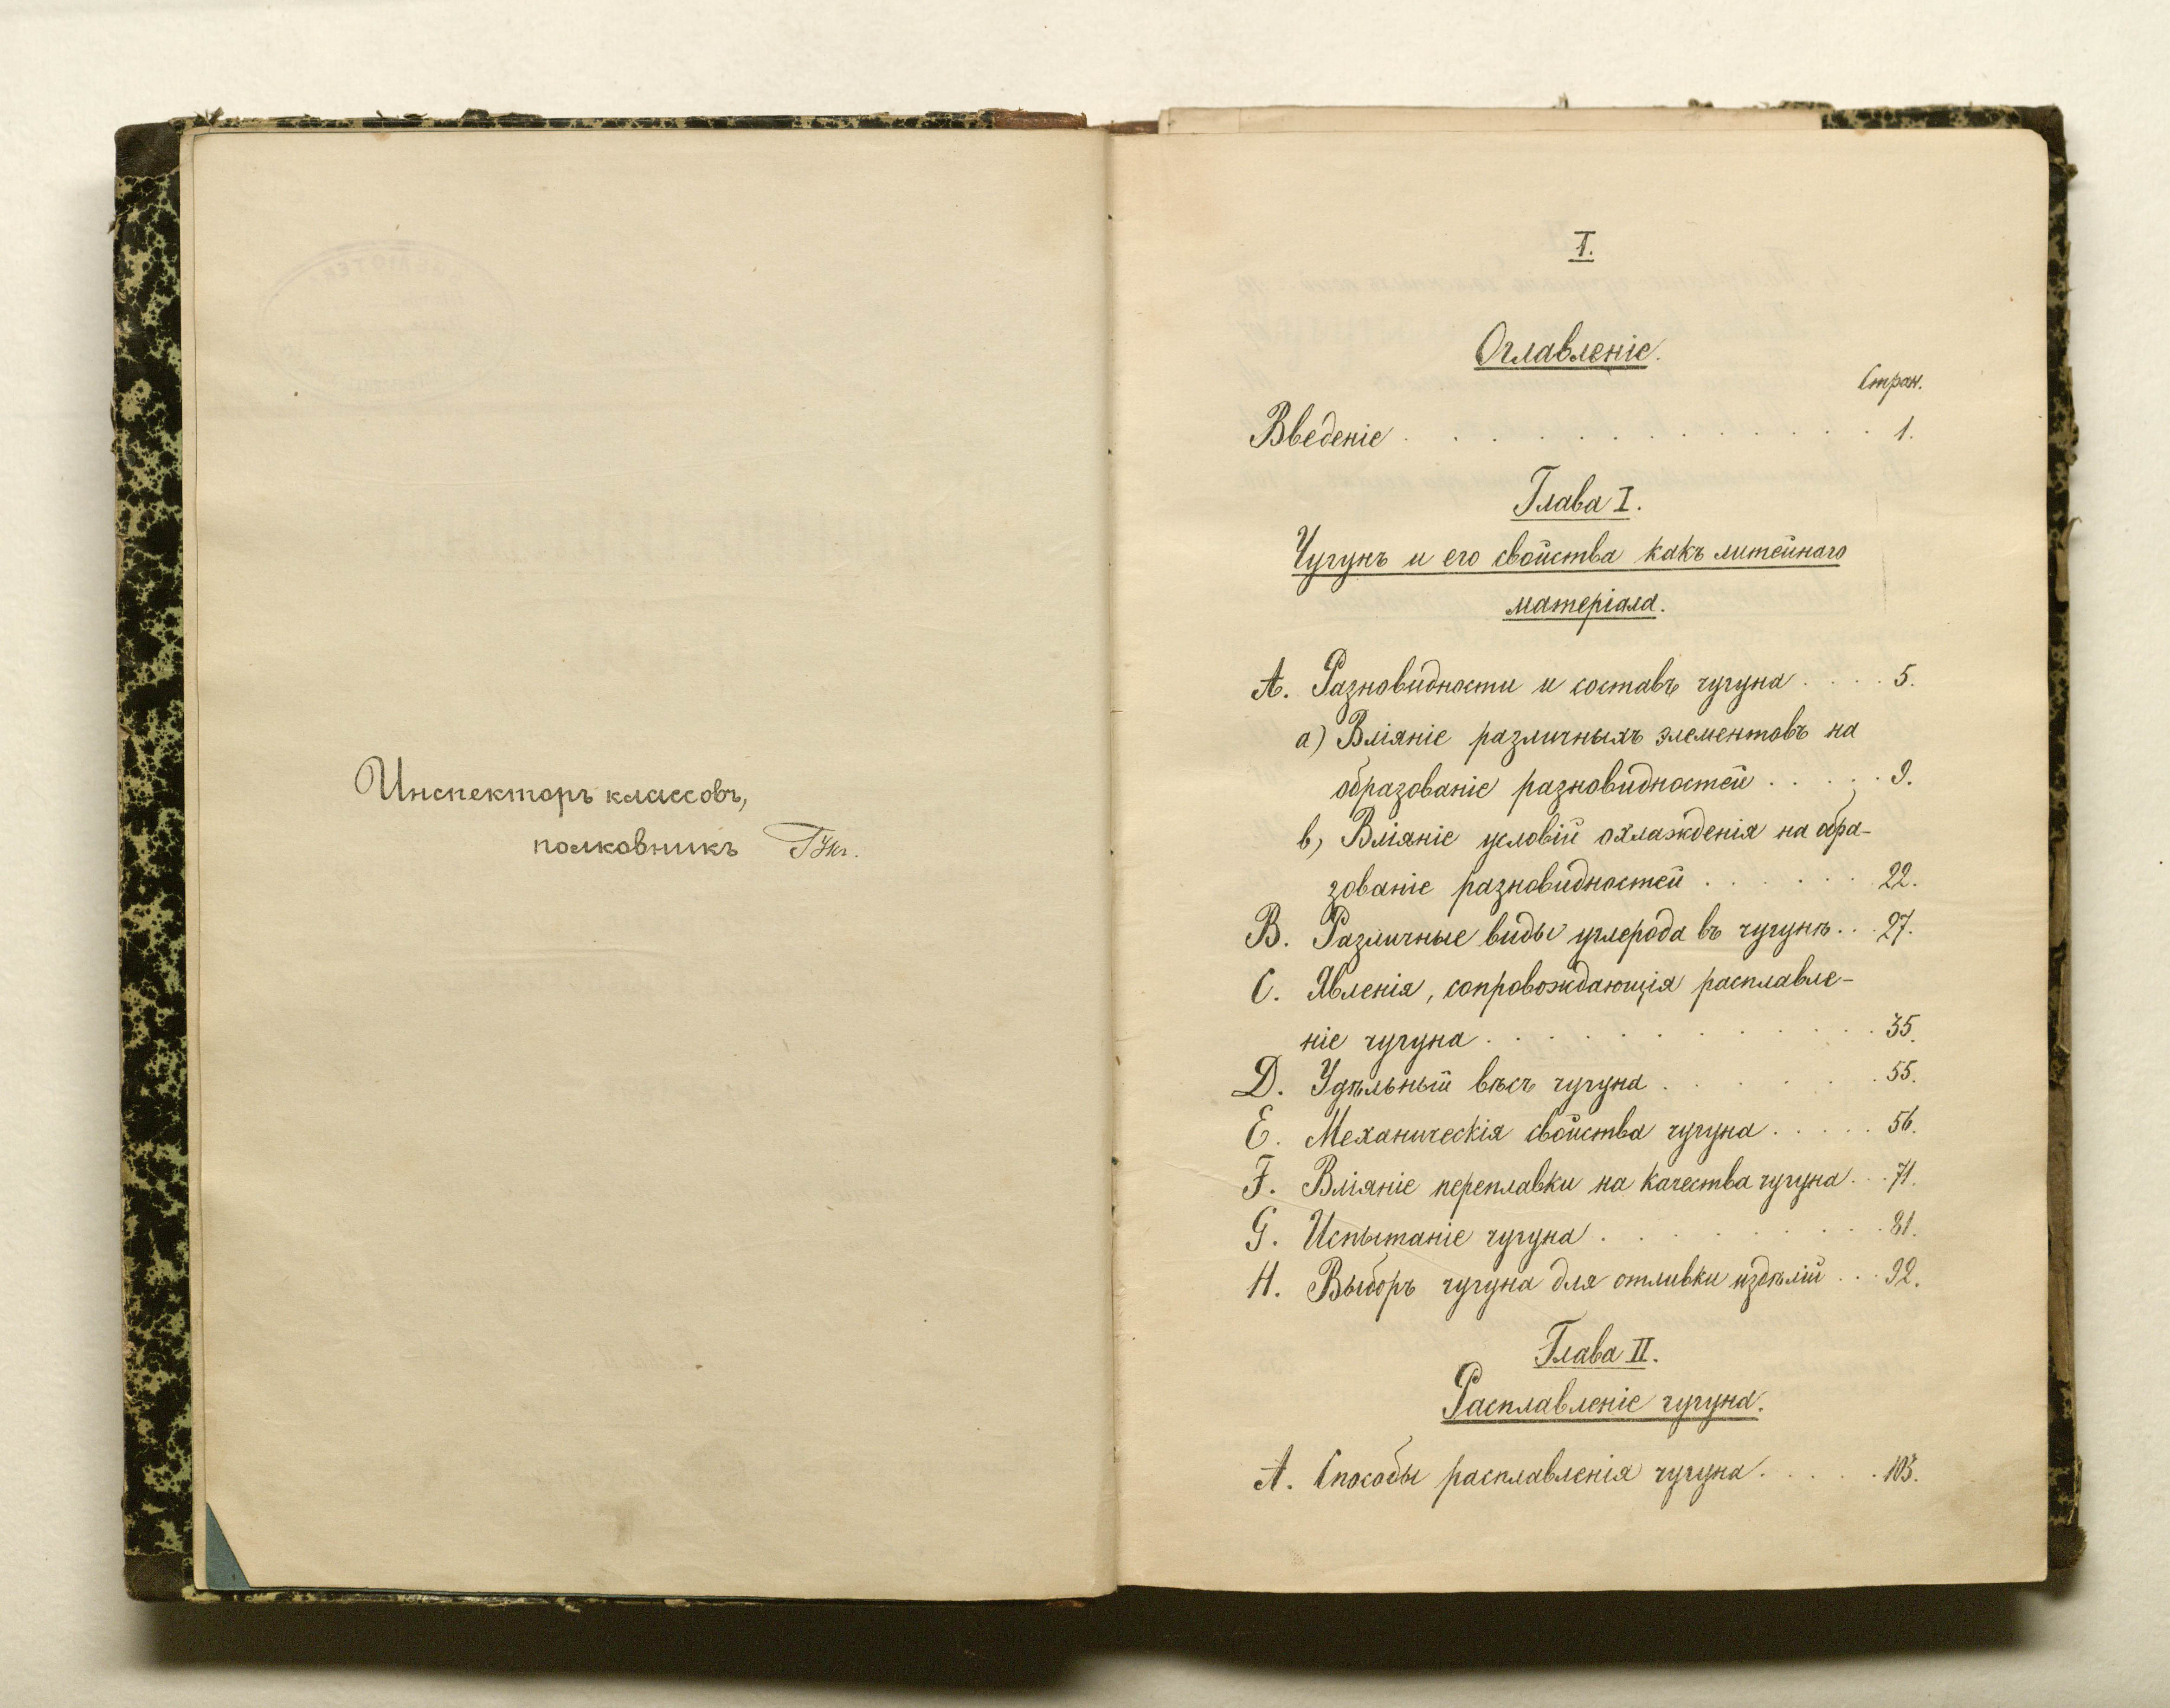 Инспекторъ классовъ,
полковникъ
I.
Оглавленіе.
Стран.
Введеніе . . . . . . . . . . . . 1.
Глава I.
Чугунъ и его свойства какъ литейнаго
матеріала.
А. Разновидности и составъ чугуна . . . . 5.
а) Вліяніе различныхъ элементовъ на
образованіе разновидностей . . . . . 9.
b) Вліяніе условій охлажденія на обра-
зованіе разновидностей . . . . . . 22.
B. Различные виды углерода въ чугунѣ . . . 27.
C. Явленія, сопровождающія расплавле-
ніе чугуна . . . . . . . . . . 35.
D. Удѣльный вѣсъ чугуна . . . . . . 55.
E. Механическія свойства чугуна . . . . . 56.
F. Вліяніе переплавки на качества чугуна . . . 71.
G. Испытаніе чугуна . . . . . . . . 81.
H. Выборъ чугуна для отливки издѣлій . . . 92.
Глава II.
Расплавленіе чугуна.
А. Способы расплавленія чугуна . . . . . 103.